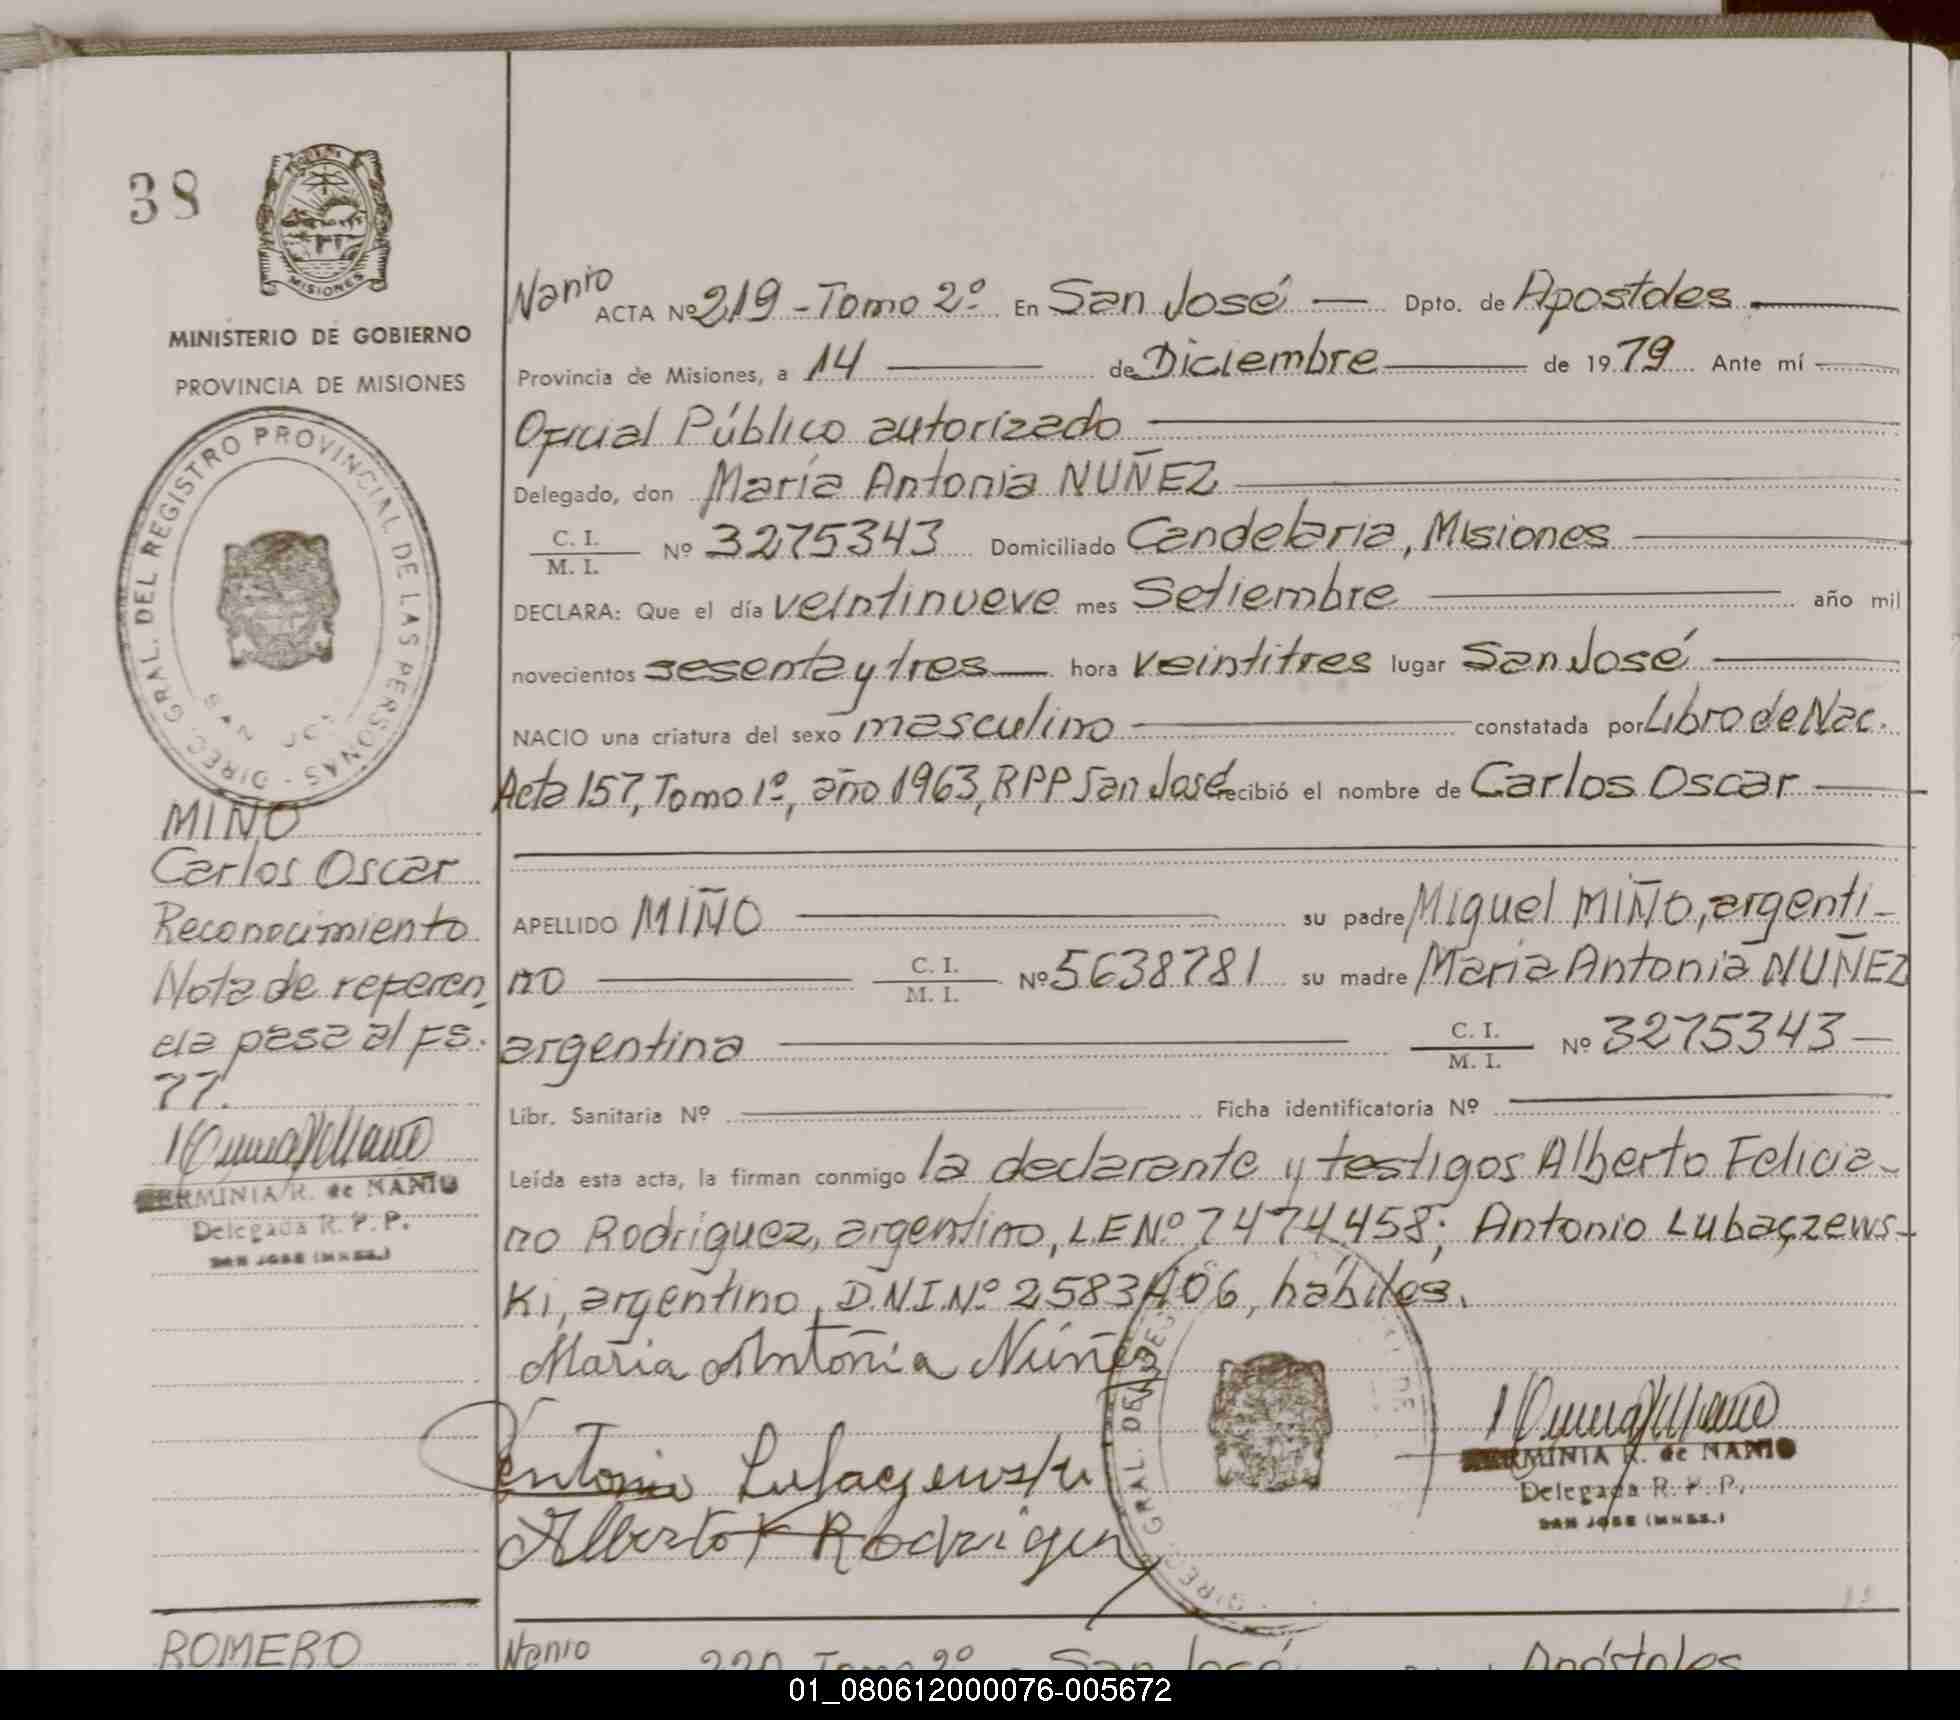 38
MISIONES
MINISTERIO DE GOBIERNO
PROVINCIA DE MISIONES
DIREC. GRAL. DEL REGISTRO PROVINCIAL DE LAS PERSONAS
SAN JO
MIÑO
Carlos Oscar
Reconocimiento
Nota de referen
cia pasa al fs.
77.
HERMINIA R. de NANIO
Delegada R. P. P.
SAN JOSE (MNES.)
ROMERO
Nanio ACTA Nº 219 - Tomo 2º En San José — Dpto. de Apostoles
Provincia de Misiones, a 14 — de Diciembre — de 1979 Ante mí
Oficial Público autorizado
Delegado, don María Antonia NUÑEZ
C. I. / M. I. Nº 3275343 Domiciliado Candelaria, Misiones
DECLARA: Que el día veintinueve mes Setiembre — año mil
novecientos sesenta y tres — hora veintitres lugar San José
NACIO una criatura del sexo masculino — constatada por Libro de Nac.
Acta 157, Tomo 1º, año 1963, RPP San José recibió el nombre de Carlos Oscar
APELLIDO MIÑO — su padre Miguel MIÑO, argenti-
no — C. I. / M. I. Nº 5638781 su madre María Antonia NUÑEZ
argentina — C. I. / M. I. Nº 3275343 —
Libr. Sanitaria Nº — Ficha identificatoria Nº —
Leída esta acta, la firman conmigo la declarante y testigos Alberto Felicia-
no Rodríguez, argentino, L.E Nº 7474458; Antonio Lubaczews-
ki, argentino, D.N.I. Nº 2583406, hábiles.
Maria Antoñia Núñez
Antonio Lubaczewski
Alberto F Rodriguez
DIREC. GRAL. DEL
HERMINIA R. de NANIO
Delegada R. P. P.
SAN JOSE (MNES.)
Nanio 220 Tomo 2º San José Apóstoles
01_080612000076-005672